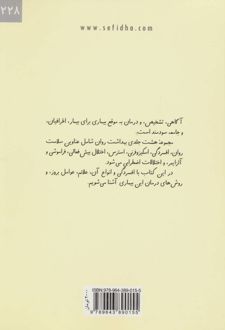 ۲۲۸
www.sefidha.com
آگاهی، تشخیص، و درمان به موقع بیماری برای بیمار، اطرافیان،
و جامعه سودمند است.
مجموعه هشت جلدی بهداشت روان شامل عناوین سلامت
روان، افسردگی، اسکیزوفرنی، استرس، اختلال بیش‌فعالی، فراموشی و
آلزایمر، و اختلالات اضطرابی می‌شود.
در این کتاب با افسردگی و انواع آن، علائم، عوامل بروز، و
روش‌های درمان این بیماری آشنا می‌شویم.
ISBN: 978-964-389-015-5
9 789643 890155
تومان